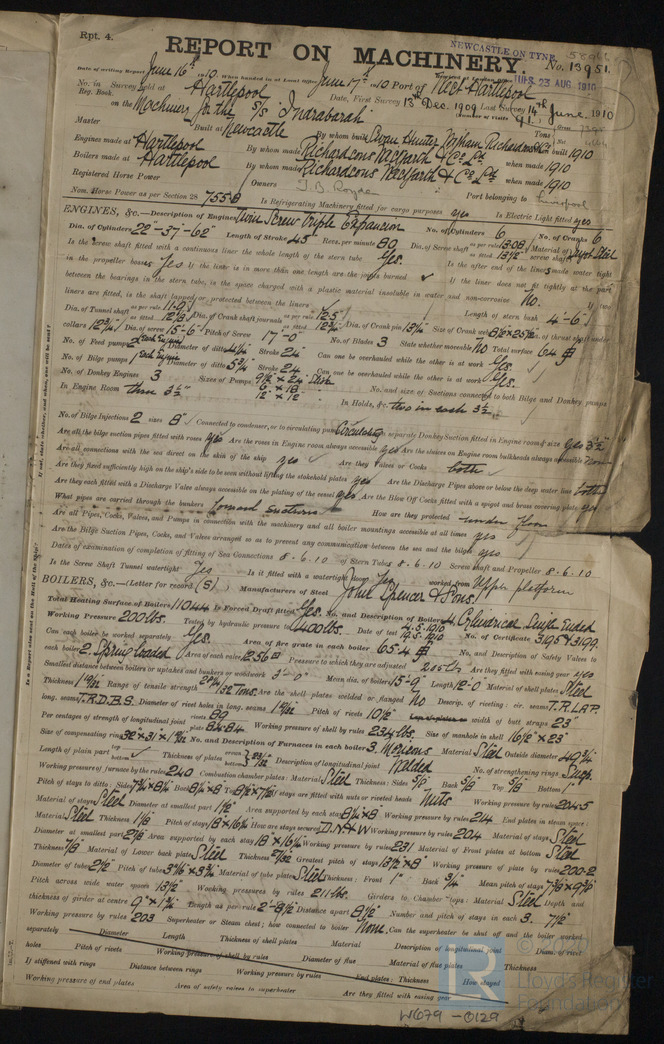 Rpt. 4.
REPORT ON MACHINERY.
NEWCASTLE ON TYNE
No. 13951.
Date of writing Report June 16th 1910 When handed in at Local Office June 17th 1910 Port of West Hartlepool
TUES. 23 AUG. 1910
No. in Survey held at Hartlepool Date, First Survey 13th Dec. 1909 Last Survey 14th June. 1910
Reg. Book. on the Machinery for the S/S Indrabarah
Master Built at Newcastle By whom built Swan Hunter Wigham Richardson & Co When built 1910
Engines made at Hartlepool By whom made Richardsons Westgarth & Co. Ltd when made 1910
Boilers made at Hartlepool By whom made Richardsons Westgarth & Co. Ltd when made 1910
Registered Horse Power Owners T. B. Royden Port belonging to Liverpool
Nom. Horse Power as per Section 28 755 Is Refrigerating Machinery fitted for cargo purposes yes Is Electric Light fitted yes
ENGINES, &c.—Description of Engines Twin Screw Triple Expansion No. of Cylinders 6 No. of Cranks 6
Dia. of Cylinders 22"-37"-62" Length of Stroke 45" Revs. per minute 80 Dia. of Screw shaft as per rule 13.08 as fitted 13 1/2" Material of screw shaft Ingot Steel
Is the screw shaft fitted with a continuous liner the whole length of the stern tube Yes. Is the after end of the liner made water tight
in the propeller boss Yes If the liner is in more than one length are the joints burned ✓ If the liner does not fit tightly at the part
between the bearings in the stern tube, is the space charged with a plastic material insoluble in water and non-corrosive No. If two
liners are fitted, is the shaft lapped or protected between the liners Length of stern bush 4'-6"
Dia. of Tunnel shaft as per rule 11.9 Dia. of Crank shaft journals as per rule 12.5 as fitted 12 3/4 Dia. of Crank pin 13 1/4 Size of Crank webs 8 1/2 x 25 1/2 Dia. of thrust shaft under
collars 12 3/4 Dia. of screw 15'-6" Pitch of Screw 17'-0" No. of Blades 3 State whether moveable No Total surface 64
No. of Feed pumps 2 each Engine Diameter of ditto Stroke 24 Can one be overhauled while the other is at work Yes.
No. of Bilge pumps 1 each Engine Diameter of ditto Stroke 24 Can one be overhauled while the other is at work Yes.
No. of Donkey Engines 3 Sizes of Pumps No. and size of Suctions connected to both Bilge and Donkey pumps
In Engine Room three 3 1/2" In Holds, &c. two in each 3 1/2
No. of Bilge Injections 2 sizes 8" Connected to condenser, or to circulating pump Circulating Is a separate Donkey Suction fitted in Engine room & size Yes 3 1/2
Are all the bilge suction pipes fitted with roses Yes Are the roses in Engine room always accessible yes Are the sluices on Engine room bulkheads always accessible None
Are all connections with the sea direct on the skin of the ship yes Are they Valves or Cocks both
Are they fixed sufficiently high on the ship's side to be seen without lifting the stokehold plates yes Are the Discharge Pipes above or below the deep water line both
Are they each fitted with a Discharge Valve always accessible on the plating of the vessel yes Are the Blow Off Cocks fitted with a spigot and brass covering plate yes
What pipes are carried through the bunkers forward suctions How are they protected under floor
Are all Pipes, Cocks, Valves, and Pumps in connection with the machinery and all boiler mountings accessible at all times yes
Are the Bilge Suction Pipes, Cocks, and Valves arranged so as to prevent any communication between the sea and the bilges yes
Dates of examination of completion of fitting of Sea Connections 8.6.10 of Stern Tube 8.6.10 Screw shaft and Propeller 8.6.10
Is the Screw Shaft Tunnel watertight Yes Is it fitted with a watertight door Yes worked from Upper platform
BOILERS, &c.—(Letter for record (S)) Manufacturers of Steel John Spencer & Sons.
Total Heating Surface of Boilers 11044 Is Forced Draft fitted Yes. No. and Description of Boilers 4 Cylindrical Single Ended
Working Pressure 200 lbs. Tested by hydraulic pressure to 400 lbs. Date of test No. of Certificate 3195 & 3199.
Can each boiler be worked separately Yes. Area of fire grate in each boiler 65.4 No. and Description of Safety Valves to
each boiler 2. Spring Loaded Area of each valve 12.56 Pressure to which they are adjusted 205 lb Are they fitted with easing gear yes
Smallest distance between boilers or uptakes and bunkers or woodwork 3'-0" Mean dia. of boilers 15'-9" Length 12'-0" Material of shell plates Steel
Thickness 1 19/32 Range of tensile strength Are the shell plates welded or flanged No Descrip. of riveting: cir. seams T.R.LAP.
long. seams T.R.D.B.S. Diameter of rivet holes in long. seams Pitch of rivets 10 1/2 width of butt straps 23"
Per centages of strength of longitudinal joint rivets 89 plate 84.84 Working pressure of shell by rules 234 lbs. Size of manhole in shell 16 1/2 x 23"
Size of compensating ring No. and Description of Furnaces in each boiler 3. Morisons Material Steel Outside diameter 49 3/4
Length of plain part Thickness of plates Description of longitudinal joint Welded No. of strengthening rings Susp.
Working pressure of furnace by the rules 240 Combustion chamber plates: Material Steel Thickness: Sides 5/8 Back 5/8 Top 5/8 Bottom 1"
Pitch of stays to ditto: Sides Back Top If stays are fitted with nuts or riveted heads Nuts Working pressure by rules 204.5
Material of stays Steel Diameter at smallest part 1 1/2 Area supported by each stay Working pressure by rules 214 End plates in steam space:
Material Steel Thickness 1 1/8 Pitch of stays How are stays secured D.N & W Working pressure by rules 204 Material of stays Steel
Diameter at smallest part Area supported by each stay Working pressure by rules 231 Material of Front plates at bottom Steel
Thickness 7/8 Material of Lower back plate Steel Thickness Greatest pitch of stays Working pressure of plate by rules 200.2
Diameter of tubes 2 1/2 Pitch of tubes Material of tube plates Steel Thickness: Front 1" Back 3/4 Mean pitch of stays
Pitch across wide water spaces 13 1/2 Working pressures by rules 211 lbs. Girders to Chamber tops: Material Steel Depth and
thickness of girder at centre Length as per rule Distance apart 8 1/2 Number and pitch of stays in each 3. 7 1/2
Working pressure by rules 203 Superheater or Steam chest; how connected to boiler None. Can the superheater be shut off and the boiler worked
separately Diameter Length Thickness of shell plates Material Description of longitudinal joint Diam. of rivet
holes Pitch of rivets Working pressure of shell by rules Diameter of flue Material of flue plates Thickness
If stiffened with rings Distance between rings Working pressure by rules End plates: Thickness How stayed
Working pressure of end plates Area of safety valves to superheater Are they fitted with easing gear
Lloyd's Register
Foundation
W679-0129